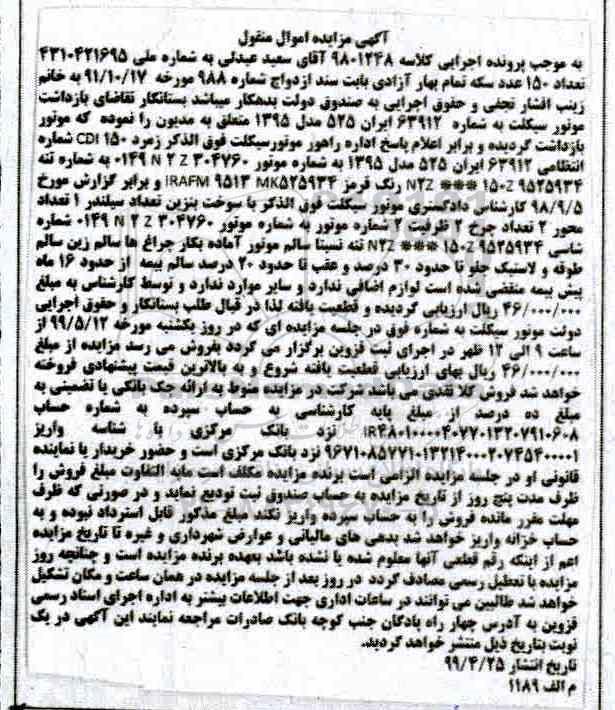 آگهی مزایده اموال منقول
به موجب پرونده اجرایی کلاسه ۹۸۰۱۲۴۸ آقای سعید عیدئی به شماره ملی ۴۳۱۰۴۲۱۶۹۵
تعداد ۱۵۰ عدد سکه تمام بهار آزادی بابت سند ازدواج شماره ۹۸۸ مورخه ۹۱/۱۰/۱۷ به خانم
زینب افشار نجفی و حقوق اجرایی به صندوق دولت بدهکار میباشد بستانکار تقاضای بازداشت
موتور سیکلت به شماره ۶۳۹۱۲ ایران ۵۲۵ مدل ۱۳۹۵ متعلق به مدیون را نموده که موتور
بازداشت گردیده و برابر اعلام پاسخ اداره راهور موتورسیکلت فوق الذکر زمرد CDI ۱۵۰ شماره
انتظامی ۶۳۹۱۲ ایران ۵۲۵ مدل ۱۳۹۵ به شماره موتور ۰۱۴۹ N ۲ Z ۳۰۴۷۶۰ به شماره تنه
N۲Z *** ۱۵۰Z ۹۵۲۵۹۳۴ رنگ قرمز IRAFM ۹۵۱۳ MK۵۲۵۹۳۴ و برابر گزارش مورخ
۹۸/۹/۵ کارشناس دادگستری موتور سیکلت فوق الذکر با سوخت بنزین تعداد سیلندر ۱ تعداد
محور ۲ تعداد چرخ ۲ ظرفیت ۲ شماره موتور به شماره موتور ۰۱۴۹ N ۲ Z ۳۰۴۷۶۰ شماره
شاسی N۲Z *** ۱۵۰Z ۹۵۲۵۹۳۴ تنه نسبتا سالم موتور آماده بکار چراغ ها سالم زین سالم
طوقه و لاستیک جلو تا حدود ۳۰ درصد و عقب تا حدود ۲۰ درصد سالم بیمه از حدود ۱۶ ماه
پیش بیمه منقضی شده است لوازم اضافی ندارد و سایر موارد ندارد و توسط کارشناس به مبلغ
۴۶/۰۰۰/۰۰۰ ریال ارزیابی گردیده و قطعیت یافته لذا در قبال طلب بستانکار و حقوق اجرایی
دولت موتور سیکلت به شماره فوق در جلسه مزایده ای که در روز یکشنبه مورخه ۹۹/۵/۱۲ از
ساعت ۹ الی ۱۲ ظهر در اجرای ثبت قزوین برگزار می گردد بفروش می رسد مزایده از مبلغ
۴۶/۰۰۰/۰۰۰ ریال بهای ارزیابی قطعیت یافته شروع و به بالاترین قیمت پیشنهادی فروخته
خواهد شد فروش کلا نقدی می باشد شرکت در مزایده منوط به ارائه چک بانکی یا تضمینی به
مبلغ ده درصد از مبلغ پایه کارشناسی به حساب سپرده به شماره حساب
IR۴۸۰۱۰۰۰۰۴۰۷۷۰۱۳۲۰۷۹۱۰۶۰۸ نزد بانک مرکزی با شناسه واریز
۹۶۷۱۰۸۵۷۷۱۰۱۳۲۱۴۰۰۰۲۰۷۴۵۴۰۰۰۰۱ نزد بانک مرکزی است و حضور خریدار یا نماینده
قانونی او در جلسه مزایده الزامی است برنده مزایده مکلف است مابه التفاوت مبلغ فروش را
ظرف مدت پنج روز از تاریخ مزایده به حساب صندوق ثبت تودیع نماید و در صورتی که ظرف
مهلت مقرر مانده فروش را به حساب سپرده واریز نکند مبلغ مذکور قابل استرداد نبوده و به
حساب خزانه واریز خواهد شد بدهی های مالیاتی و عوارض شهرداری و غیره تا تاریخ مزایده
اعم از اینکه رقم قطعی آنها معلوم شده یا نشده باشد بعهده برنده مزایده است و چنانچه روز
مزایده با تعطیل رسمی مصادف گردد در روز بعد از جلسه مزایده در همان ساعت و مکان تشکیل
خواهد شد طالبین می توانند در ساعات اداری جهت اطلاعات بیشتر به اداره اجرای اسناد رسمی
قزوین به آدرس چهار راه پادگان جنب کوچه بانک صادرات مراجعه نمایند این آگهی در یک
نوبت بتاریخ ذیل منتشر خواهد گردید.
تاریخ انتشار ۹۹/۴/۲۵
م الف ۱۱۸۹